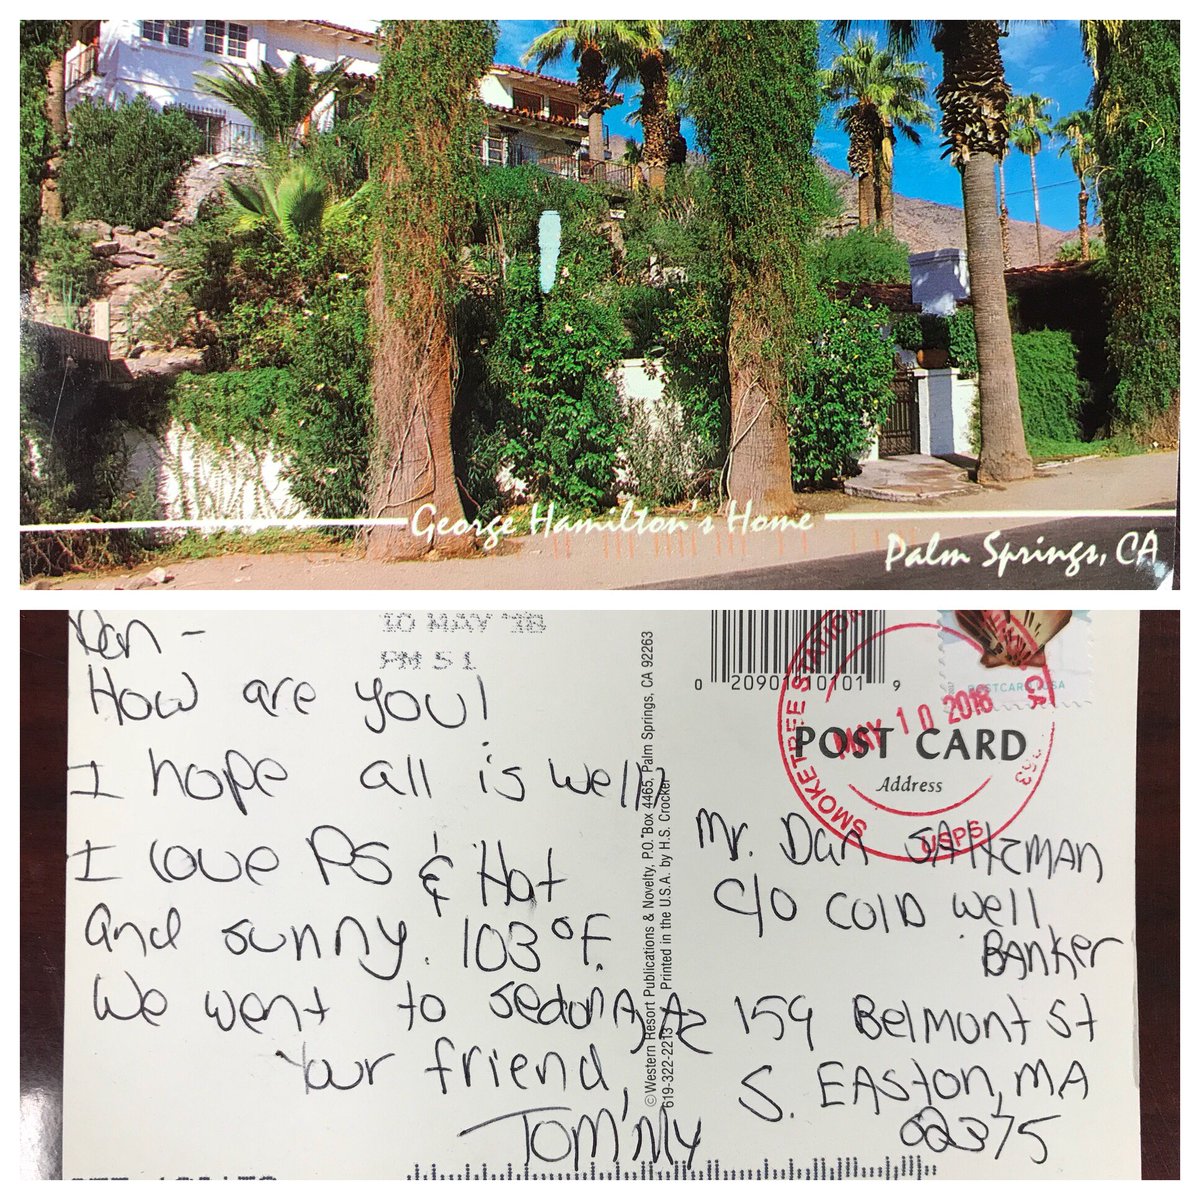 George Hamilton's Home
Palm Springs, CA
Dan -
How are you!
I hope all is well,
I love PS & Hot
and sunny. 103°F.
We went to Sedona, Az
Your friend,
Tommy
10 MAY '18
PM 5 L
©Western Resort Publications & Novelty, P.O. Box 4465, Palm Springs, CA 92263
619-322-2213 Printed in the U.S.A. by H.S. Crocker
0 20901 10101 9
SMOKETREE STATION
MAY 10 2018
USPS
POSTCARD USA
POST CARD
Address
Mr. Dan SAltzMAN
C/O COlD Well
BANKer
159 Belmont St
S. EASton, MA
02375